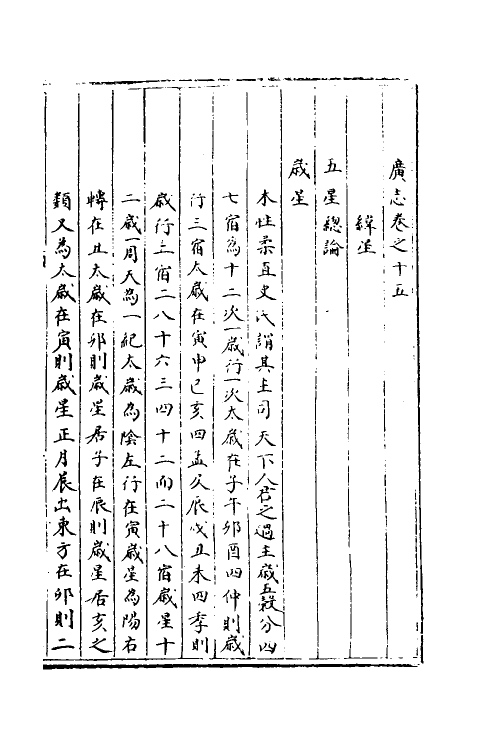 廣志卷之十五
緯星
五星總論
歲星
木性柔直史氏謂其主司天下人君之過主歲五穀分四
七宿為十二次一歲行一次太歲在子午卯酉四仲則歲
行三宿太歲在寅申巳亥四孟及辰戌丑未四季則
歲行二宿二八十六三四十二而二十八宿歲星十
二歲一周天為一紀太歲為陰左行在寅歲星為陽右
轉在丑太歲在卯則歲星居子在辰則歲星居亥之
類又為太歲在寅則歲星正月晨出東方在卯則二